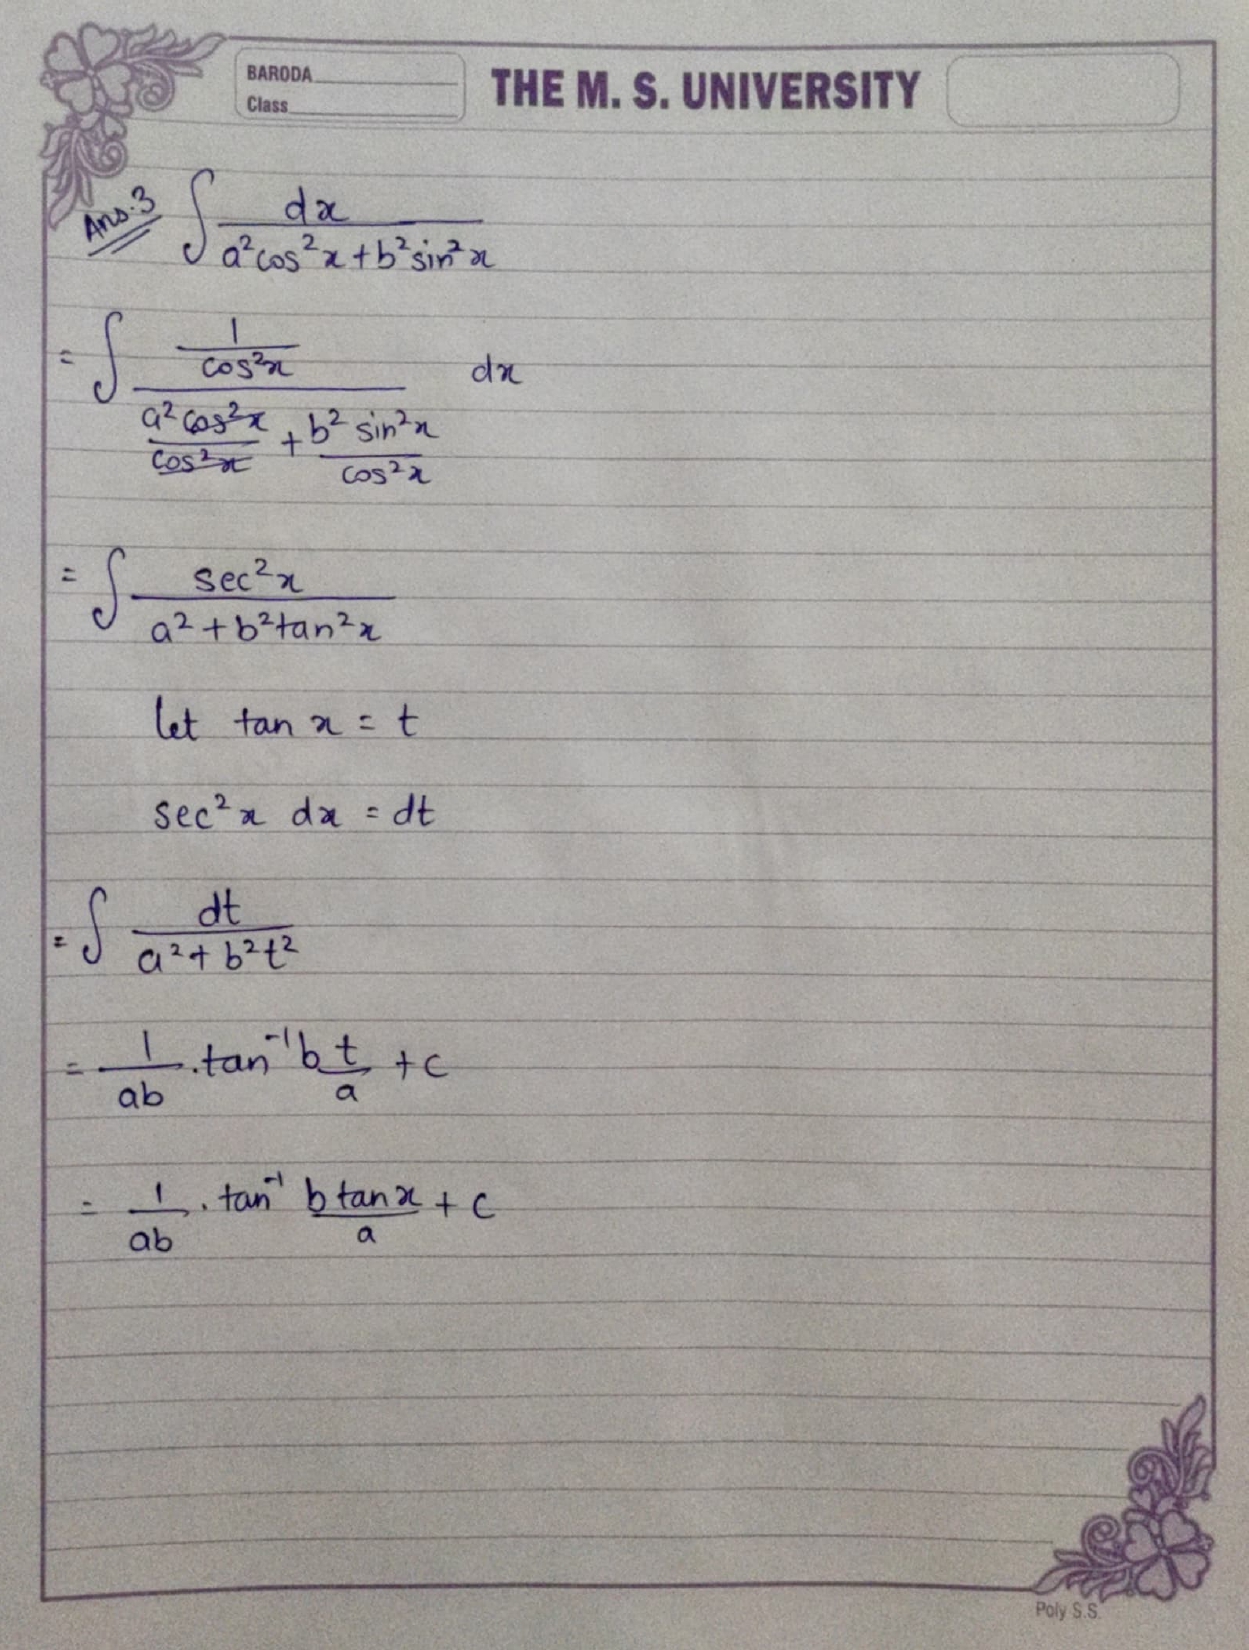 BARODA
Class
THE M. S. UNIVERSITY
Ans. 3 ∫ dx / (a² cos² x + b² sin² x)
= ∫ (1 / cos² x) / (a² cos² x / cos² x + b² sin² x / cos² x) dx
= ∫ sec² x / (a² + b² tan² x)
let tan x = t
sec² x dx = dt
= ∫ dt / (a² + b² t²)
= 1/ab . tan⁻¹ b t/a + c
= 1/ab . tan⁻¹ b tan x / a + c
Poly S.S.